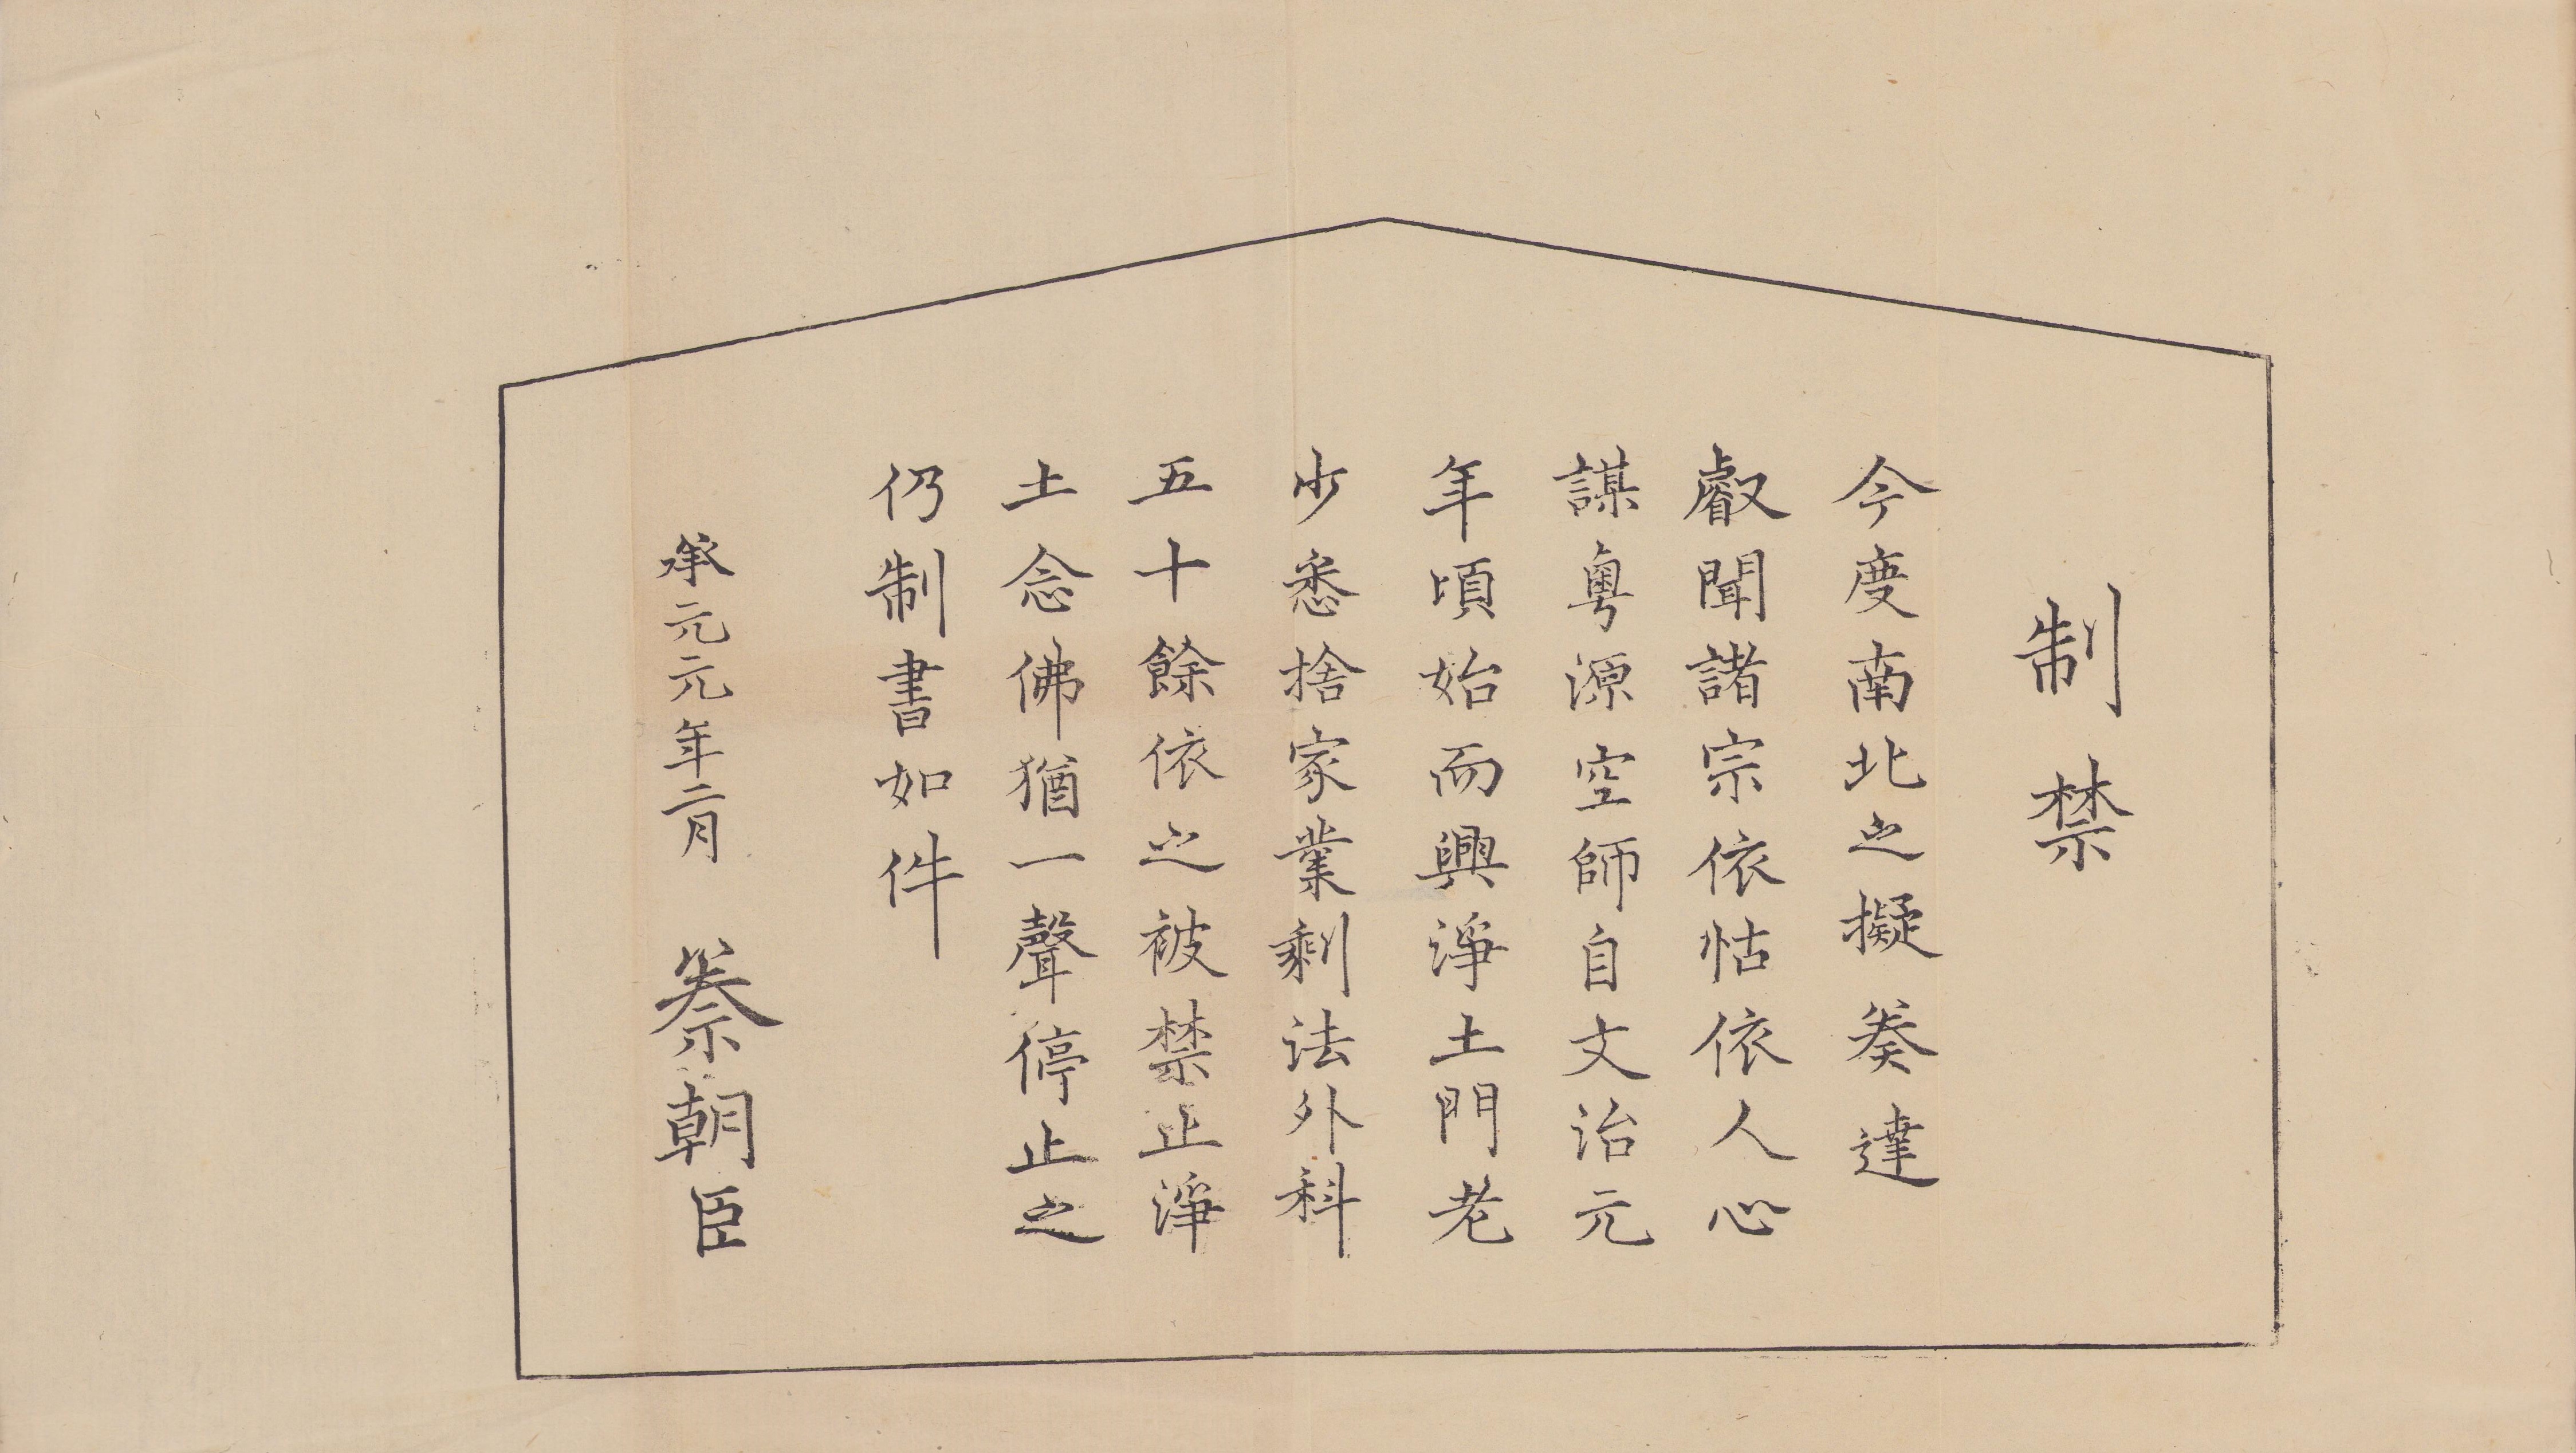 制禁
今度南北之擬奏達
叡聞諸宗依怙依人心
謀粤源空師自文治元
年頃始而興淨土門老
少悉捨家業剩法外科
五十餘依之被禁止淨
土念佛猶一聲停止之
仍制書如件
承元元年二月 叅朝臣